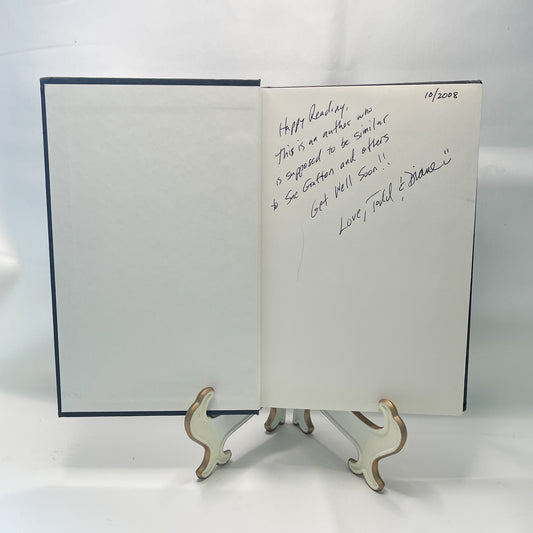 10/2008
Happy Reading,
This is an author who
is supposed to be similar
to Sue Grafton and others
Get Well Soon!!
Love, Todd & Diane